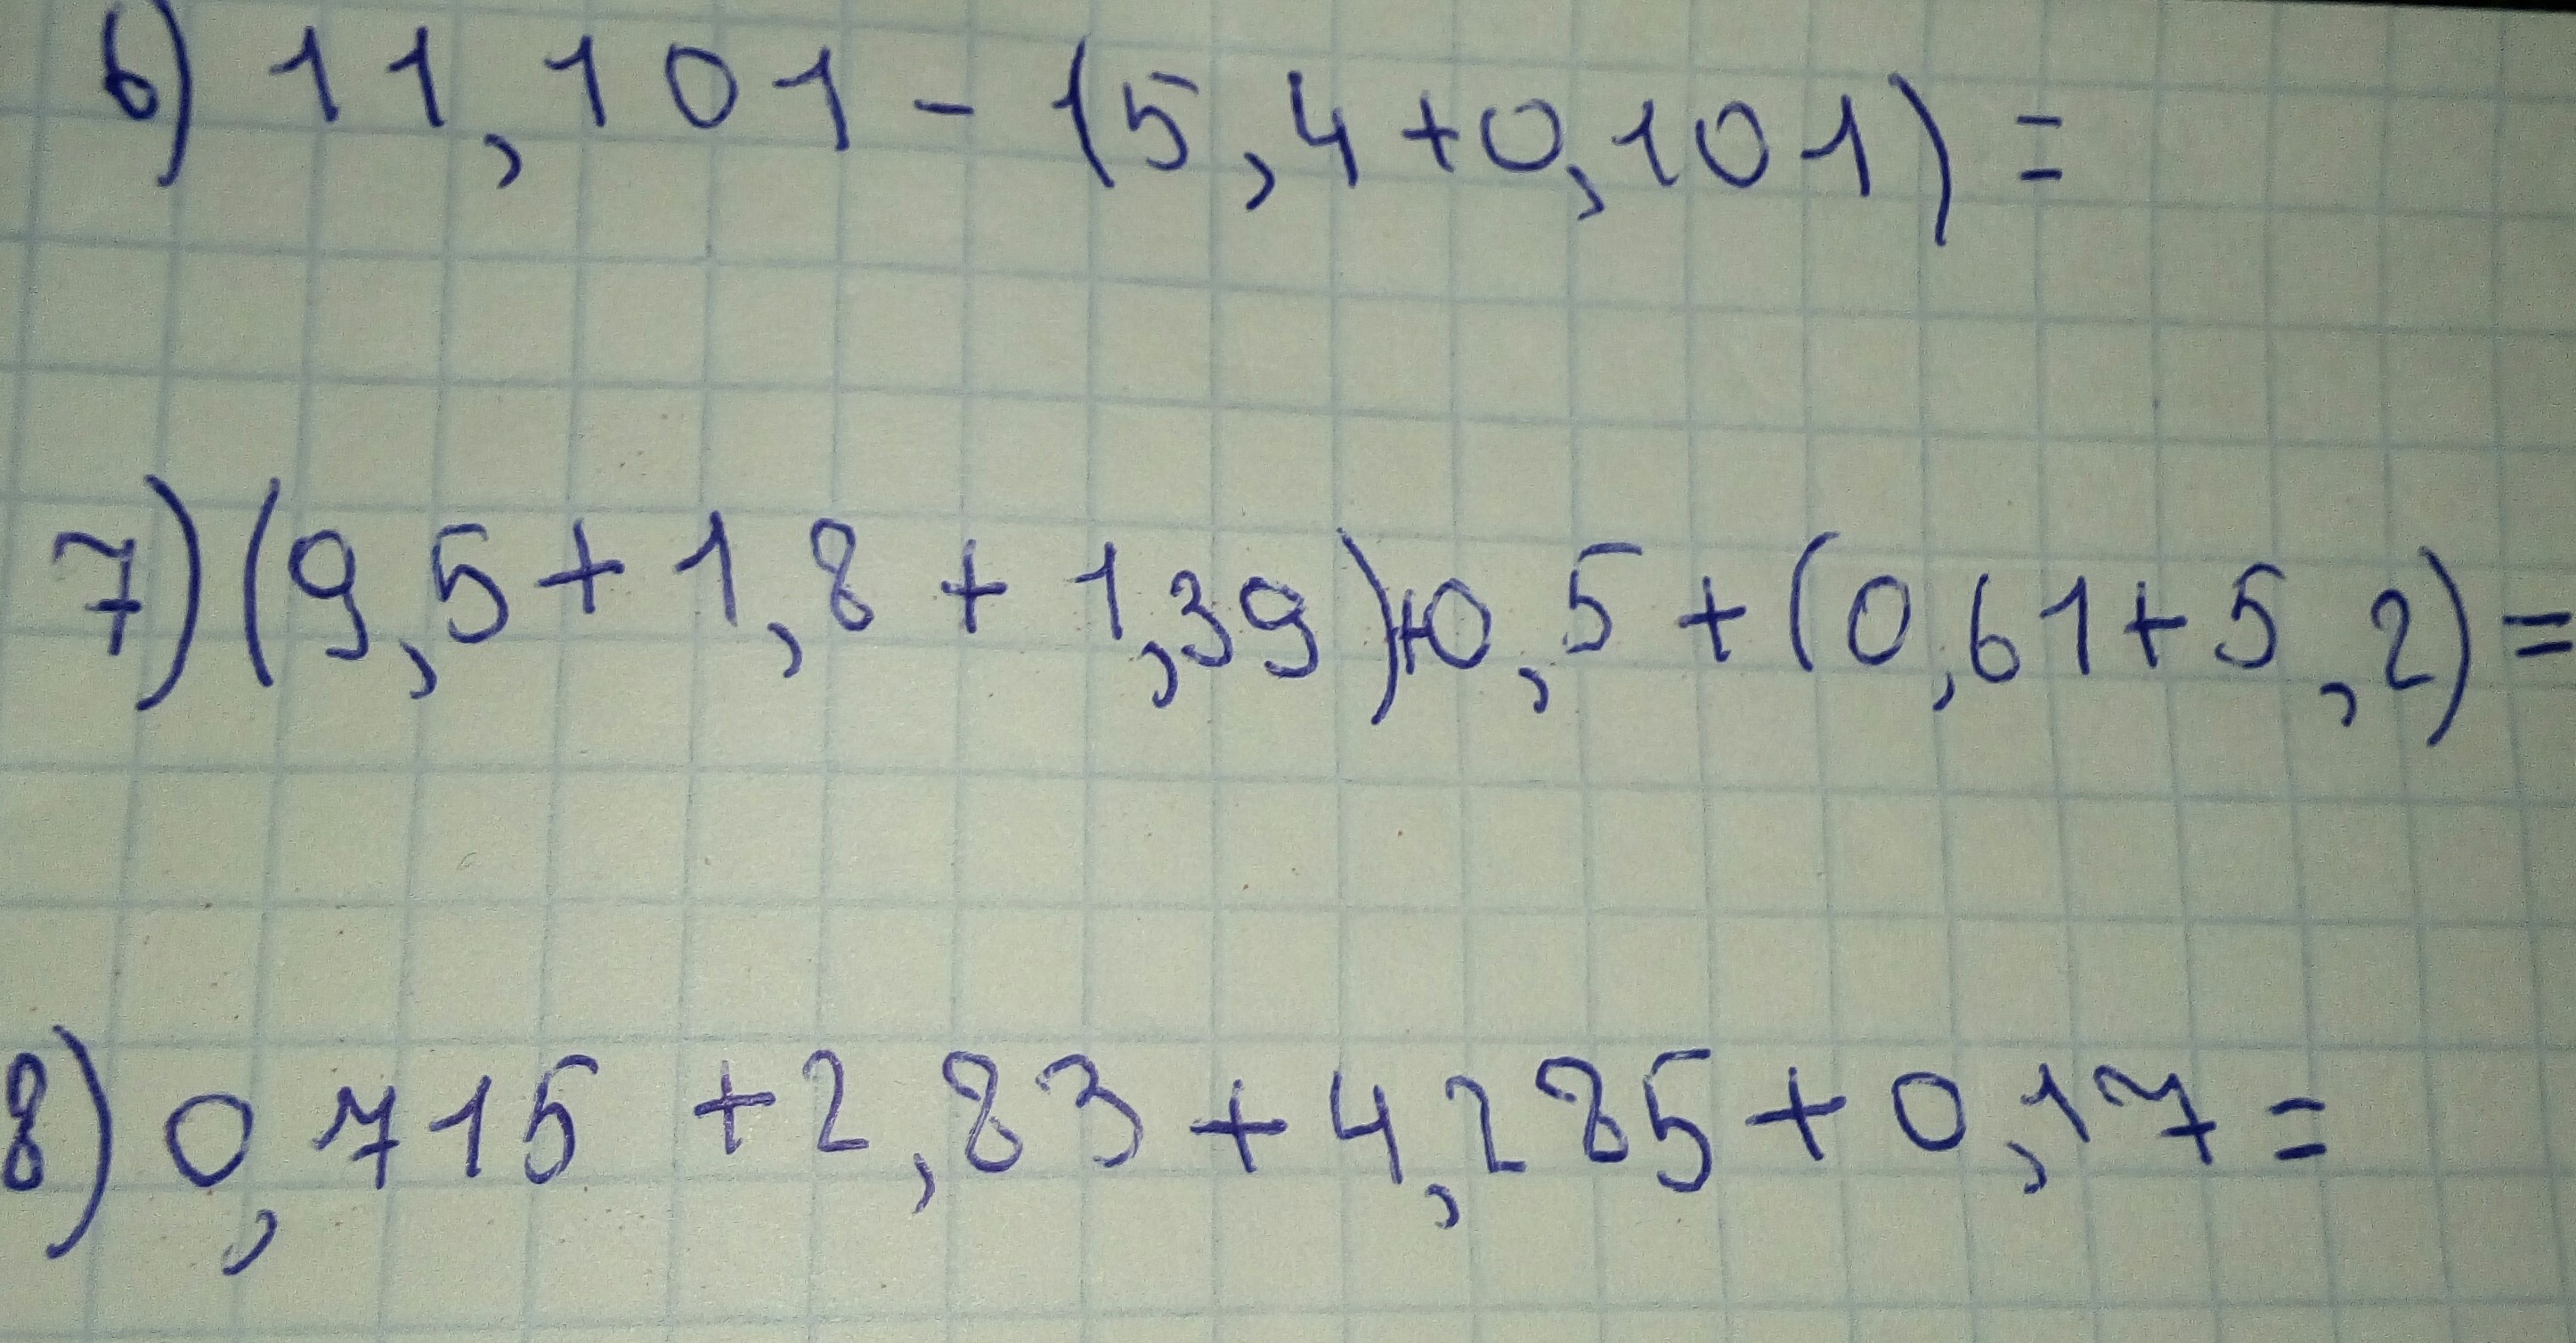 6) 11,101 - (5,4+0,101) =
7) (9,5+1,8 + 1,39)+0,5 + (0,61+5,2) =
8) 0,715 +2,83 + 4,285+0,17=